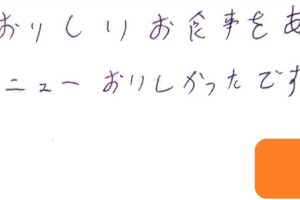 おいしいお食事をあ
ニュー おいしかったです